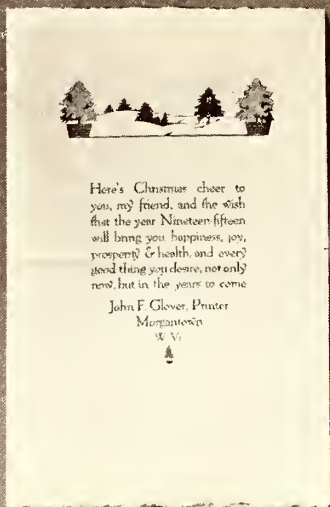 Here's Christmas cheer to
you, my friend, and the wish
that the year Nineteen-fifteen
will bring you happiness, joy,
prosperity & health, and every
good thing you desire, not only
now, but in the years to come
John F. Glover, Printer
Morgantown
W. Va.